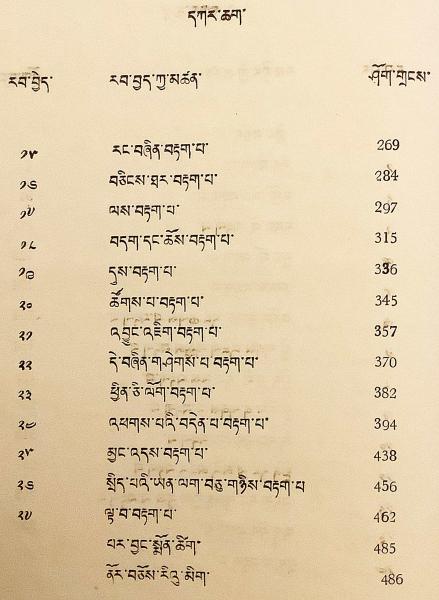 དཀར་ཆག་
རབ་བྱེད་ རབ་བྱེད་ཀྱི་མཚན་ ཤོག་གྲངས་
༡༥ རང་བཞིན་བརྟག་པ་ 269
༡༦ བཅིངས་ཐར་བརྟག་པ་ 284
༡༧ ལས་བརྟག་པ་ 297
༡༨ བདག་དང་ཆོས་བརྟག་པ་ 315
༡༩ དུས་བརྟག་པ་ 336
༢༠ ཚོགས་པ་བརྟག་པ་ 345
༢༡ འབྱུང་འཇིག་བརྟག་པ་ 357
༢༢ དེ་བཞིན་གཤེགས་པ་བརྟག་པ་ 370
༢༣ ཕྱིན་ཅི་ལོག་བརྟག་པ་ 382
༢༤ འཕགས་པའི་བདེན་པ་བརྟག་པ་ 394
༢༥ མྱང་འདས་བརྟག་པ་ 438
༢༦ སྲིད་པའི་ཡན་ལག་བཅུ་གཉིས་བརྟག་པ 456
༢༧ ལྟ་བ་བརྟག་པ་ 462
པར་བྱང་སྨོན་ཚིག་ 485
ནོར་བཅོས་རེའུ་མིག་ 486